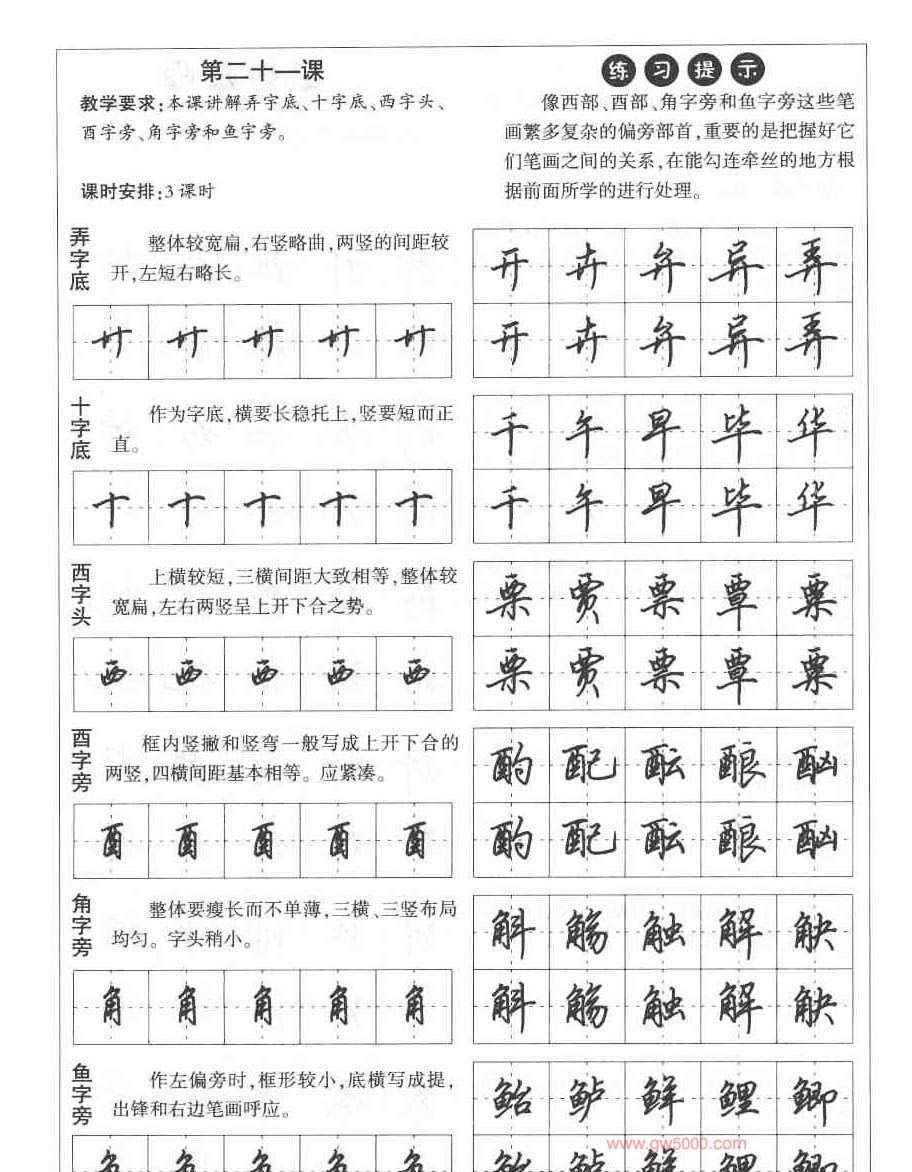 第二十一课
教学要求:本课讲解弄字底、十字底、西字头、
酉字旁、角字旁和鱼字旁。
课时安排:3课时
练习提示
像西部、酉部、角字旁和鱼字旁这些笔
画繁多复杂的偏旁部首,重要的是把握好它
们笔画之间的关系,在能勾连牵丝的地方根
据前面所学的进行处理。
弄字底
整体较宽扁,右竖略曲,两竖的间距较
开,左短右略长。
廾 廾 廾 廾 廾
开 卉 弁 异 弄
开 卉 弁 异 弄
十字底
作为字底,横要长稳托上,竖要短而正
直。
十 十 十 十 十
千 午 早 毕 华
千 午 早 毕 华
西字头
上横较短,三横间距大致相等,整体较
宽扁,左右两竖呈上开下合之势。
西 西 西 西 西
栗 贾 票 覃 粟
栗 贾 票 覃 粟
酉字旁
框内竖撇和竖弯一般写成上开下合的
两竖,四横间距基本相等。应紧凑。
酉 酉 酉 酉 酉
酌 配 酝 酿 酗
酌 配 酝 酿 酗
角字旁
整体要瘦长而不单薄,三横、三竖布局
均匀。字头稍小。
角 角 角 角 角
斛 觞 触 解 觖
斛 觞 触 解 觖
鱼字旁
作左偏旁时,框形较小,底横写成提,
出锋和右边笔画呼应。
鲐 鲈 鲜 鲤 鲫
www.gw5000.com